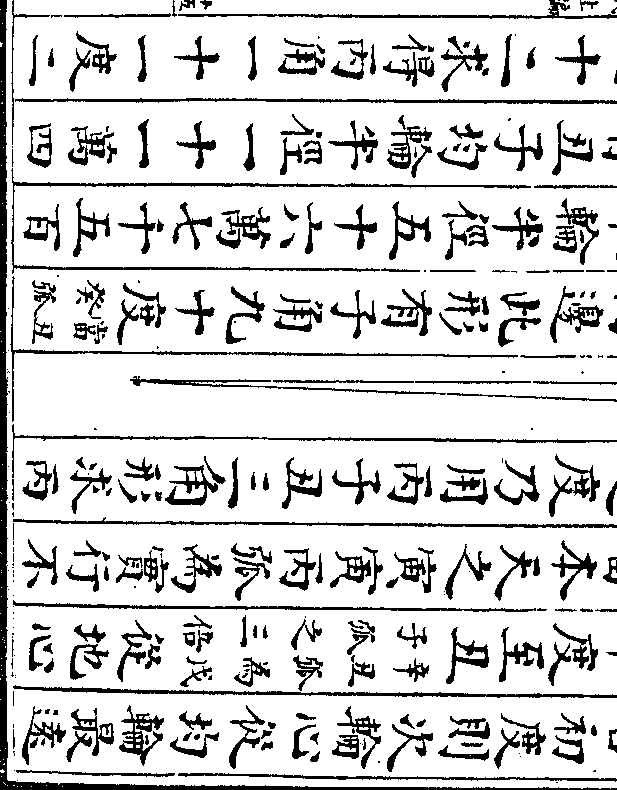 初度則次輪心從均輪最遠
度至丑辛丑弧為戊
子弧之三倍從地心
本天之寅寅丙弧為實行不
度乃用丙子丑三角形求丙
邊此形有子角九十度當丑
癸弧
輪半徑五十六萬七千五百
丑子均輪半徑一十一萬四
十二求得丙角一十一度二